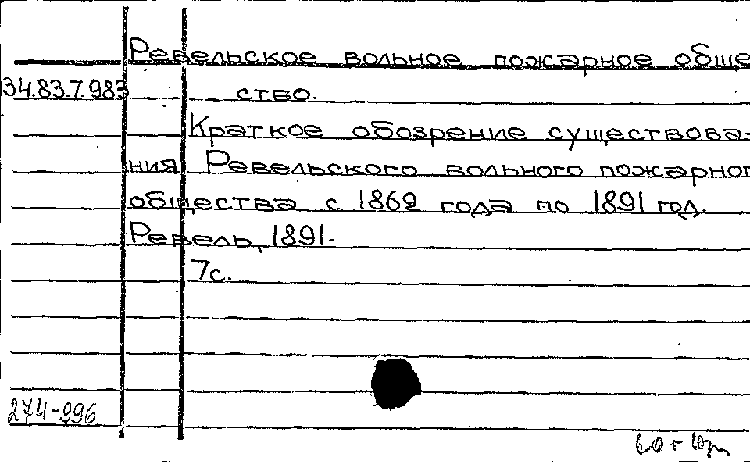 Ревельское вольное пожарное обще
34.83.7.983 ство.
Краткое обозрение существова-
ния Ревельского вольного пожарног
общества с 1862 года по 1891 год.
Ревель, 1891.
7с.
274-996